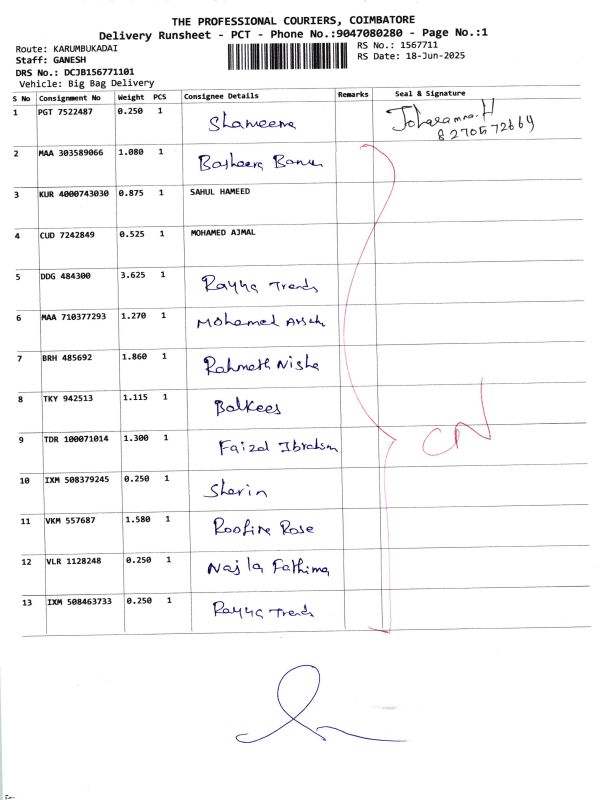 THE PROFESSIONAL COURIERS, COIMBATORE
Delivery Runsheet - PCT - Phone No.:9047080280 - Page No.:1
Route: KARUMBUKADAI
RS No.: 1567711
Staff: GANESH
RS Date: 18-Jun-2025
DRS No.: DCJB156771101
Vehicle: Big Bag Delivery
S No Consignment No Weight PCS Consignee Details Remarks Seal & Signature
1 PGT 7522487 0.250 1 Shameema
8270572669
2 MAA 303589066 1.080 1 Basheera Banu
3 KUR 4000743030 0.875 1 SAHUL HAMEED
4 CUD 7242849 0.525 1 MOHAMED AJMAL
5 DDG 484300 3.625 1 Rayya Trends
6 MAA 710377293 1.270 1 Mohamed
7 BRH 485692 1.860 1 Rahmath Nisha
8 TKY 942513 1.115 1 Balkees
9 TDR 100071014 1.300 1 Faizal Ibrahim
CN
10 IXM 508379245 0.250 1 Sherin
11 VKM 557687 1.580 1 Rose
12 VLR 1128248 0.250 1 Najla Fathima
13 IXM 508463733 0.250 1 Rayya Trends